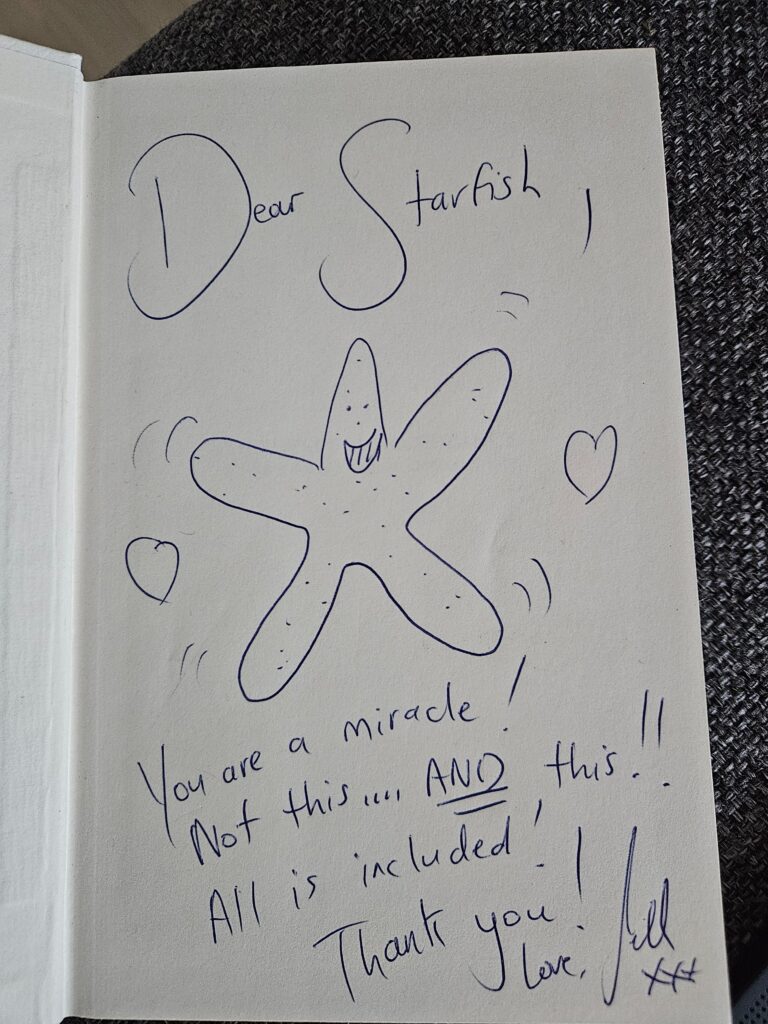 Dear Starfish,
You are a miracle!
Not this.... AND this!!
All is included!
Thank you!
Love, Jill
xxx